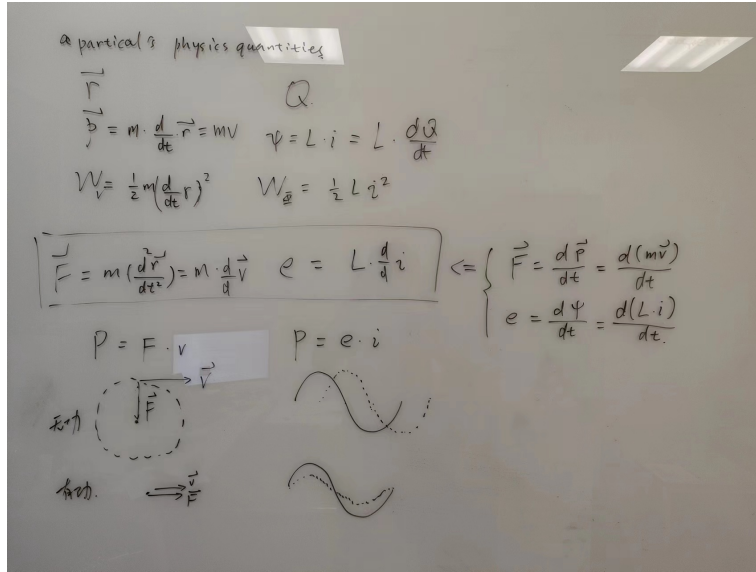 a partical's physics quantities
r⃗ Q
p⃗ = m · d/dt · r⃗ = mv ψ = L · i = L · dQ/dt
W_v = ½ m(d/dt r)² W_Φ = ½ L i²
F⃗ = m(d²r⃗/dt²) = m · d/d v⃗ e = L · d/d i <= { F⃗ = dp⃗/dt = d(mv⃗)/dt
e = dψ/dt = d(L·i)/dt.
P = F · v P = e · i
v⃗
F⃗
无功
有功. v⃗
F⃗